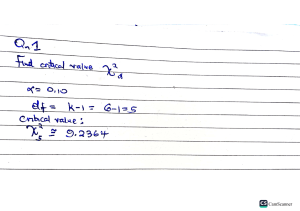 Qn 1
Find critical value χ²α
α = 0.10
df = k-1 = 6-1=5
Critical value:
χ²5 ≅ 9.2364
CS CamScanner